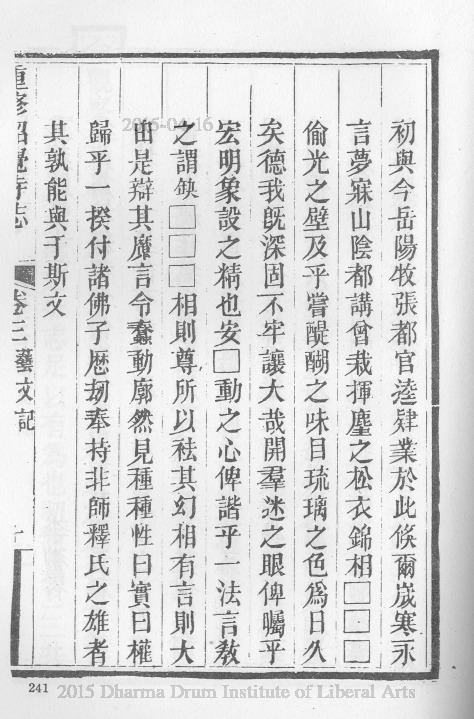 初與今岳陽牧張都官逵肄業於此倐爾歲寒永
言夢寐山陰都講曾栽揮麈之松衣錦相□□□
偷光之壁及乎嘗醍醐之味目琉璃之色為日久
矣德我旣深固不牢讓大哉開羣迷之眼俾矚乎
宏明象設之精也安□動之心俾諧乎一法言敎
之謂缺□□□相則尊所以祛其幻相有言則大
由是辯其魔言令蠢動廓然見種種性曰實曰權
歸乎一揆付諸佛子歷刼奉持非師釋氏之雄者
其孰能與于斯文
重修昭覺寺志
卷三 藝文記
2015-04-16
241
2015 Dharma Drum Institute of Liberal Arts